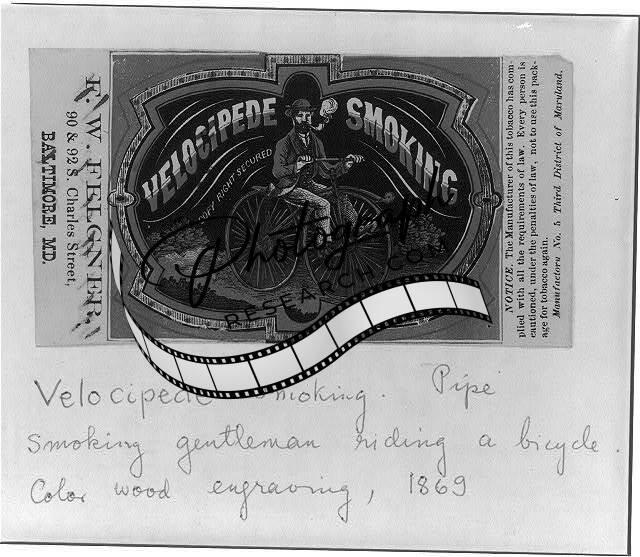 F. W. FELGNER,
90 & 92 S. Charles Street,
BALTIMORE, MD.
VELOCIPEDE SMOKING
COPY RIGHT SECURED
NOTICE. The Manufacturer of this tobacco has com-
plied with all the requirements of law. Every person is
cautioned, under the penalties of law, not to use this pack-
age for tobacco again.
Manufactory No. 5 Third District of Maryland.
Photograph
RESEARCH.COM
Velocipede Smoking. Pipe
smoking gentleman riding a bicycle.
Color wood engraving, 1869